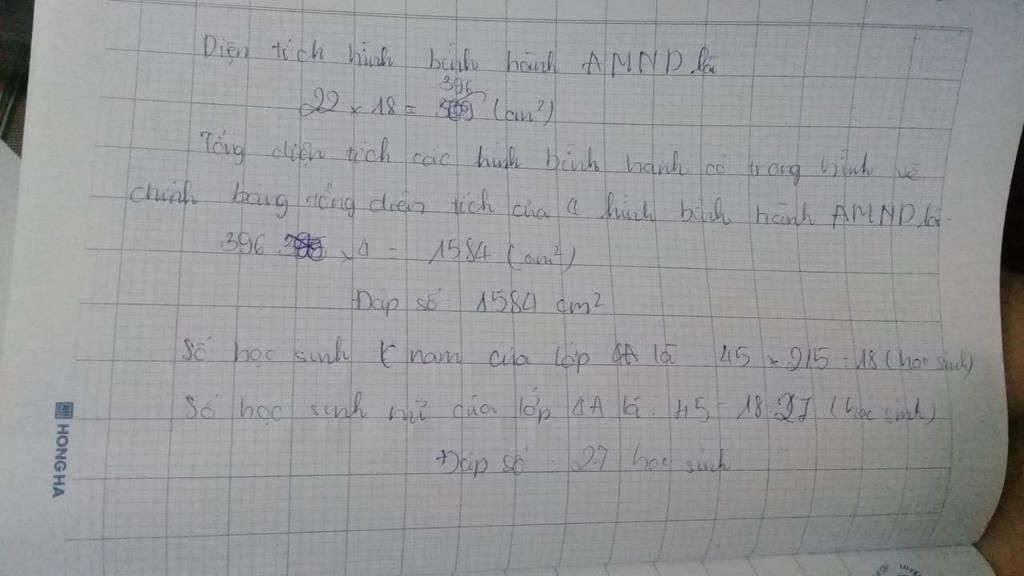 Diện tích hình bình hành AMND là
396
22 x 18 = (cm²)
Tổng diện tích các hình bình hành có trong hình vẽ
chính bằng tổng diện tích của 4 hình bình hành AMND là
396 x 4 = 1584 (cm²)
Đáp số 1584 cm²
Số học sinh nam của lớp 4A là 45 x 2/5 = 18 (học sinh)
Số học sinh nữ của lớp 4A là 45 - 18 = 27 (học sinh)
Đáp số 27 học sinh
HONG HA